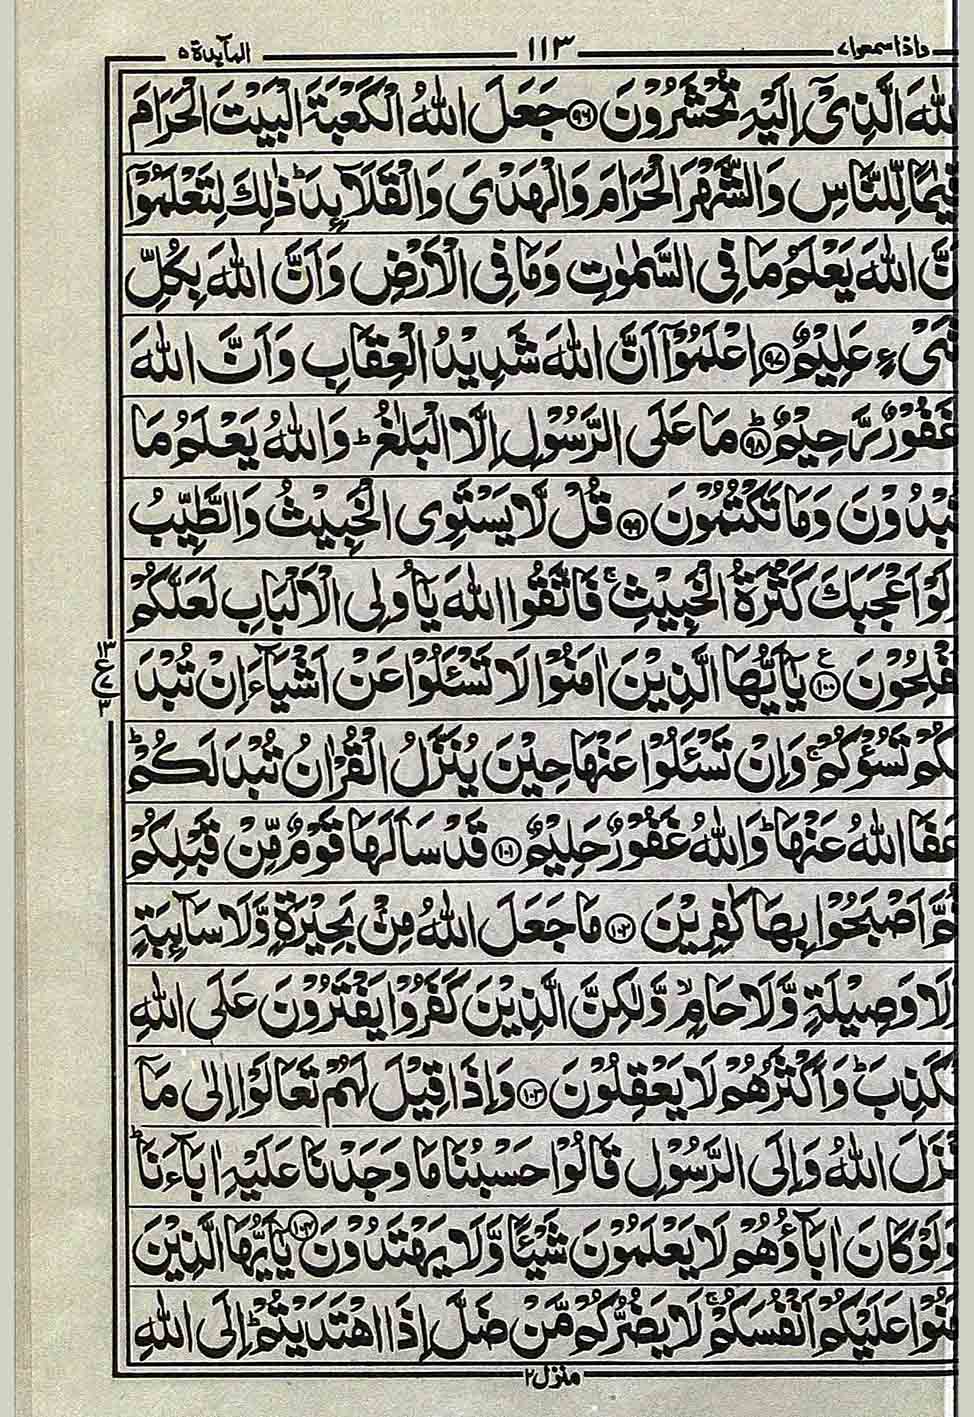 واذا سمعوا ٧ ١١٣ المآىدة ٥
اللهَ الَّذِىْۤ اِلَيْهِ تُحْشَرُوْنَ ۝٩٦ جَعَلَ اللهُ الْكَعْبَةَ الْبَيْتَ الْحَرَامَ
قِيٰمًا لِّلنَّاسِ وَالشَّهْرَ الْحَرَامَ وَالْهَدْىَ وَالْقَلَآئِدَ ؕ ذٰلِكَ لِتَعْلَمُوْۤا
نَّ اللهَ يَعْلَمُ مَا فِى السَّمٰوٰتِ وَمَا فِى الْاَرْضِ وَاَنَّ اللهَ بِكُلِّ
شَىْءٍ عَلِيْمٌ ۝٩٧ اِعْلَمُوْۤا اَنَّ اللهَ شَدِيْدُ الْعِقَابِ وَاَنَّ اللهَ
غَفُوْرٌ رَّحِيْمٌ ؕ۝٩٨ مَا عَلَى الرَّسُوْلِ اِلَّا الْبَلٰغُ ؕ وَاللهُ يَعْلَمُ مَا
تُبْدُوْنَ وَمَا تَكْتُمُوْنَ ۝٩٩ قُلْ لَّا يَسْتَوِى الْخَبِيْثُ وَالطَّيِّبُ
وَلَوْ اَعْجَبَكَ كَثْرَةُ الْخَبِيْثِ ۚ فَاتَّقُوا اللهَ يٰۤاُولِى الْاَلْبَابِ لَعَلَّكُمْ
تُفْلِحُوْنَ ۝١٠٠ ع يٰۤاَيُّهَا الَّذِيْنَ اٰمَنُوْا لَا تَسْئَلُوْا عَنْ اَشْيَآءَ اِنْ تُبْدَ
١٣ ع ٧ ٣
لَكُمْ تَسُؤْكُمْ ۚ وَاِنْ تَسْئَلُوْا عَنْهَا حِيْنَ يُنَزَّلُ الْقُرْاٰنُ تُبْدَ لَكُمْ ؕ
عَفَا اللهُ عَنْهَا ؕ وَاللهُ غَفُوْرٌ حَلِيْمٌ ۝١٠١ قَدْ سَاَلَهَا قَوْمٌ مِّنْ قَبْلِكُمْ
ثُمَّ اَصْبَحُوْا بِهَا كٰفِرِيْنَ ۝١٠٢ مَا جَعَلَ اللهُ مِنْۢ بَحِيْرَةٍ وَّلَا سَآئِبَةٍ
وَّلَا وَصِيْلَةٍ وَّلَا حَامٍ ۙ وَّلٰكِنَّ الَّذِيْنَ كَفَرُوْا يَفْتَرُوْنَ عَلَى اللهِ
الْكَذِبَ ؕ وَاَكْثَرُهُمْ لَا يَعْقِلُوْنَ ۝١٠٣ وَاِذَا قِيْلَ لَهُمْ تَعَالَوْا اِلٰى مَاۤ
اَنْزَلَ اللهُ وَاِلَى الرَّسُوْلِ قَالُوْا حَسْبُنَا مَا وَجَدْنَا عَلَيْهِ اٰبَآءَنَا ؕ
اَوَلَوْ كَانَ اٰبَآؤُهُمْ لَا يَعْلَمُوْنَ شَيْئًا وَّلَا يَهْتَدُوْنَ ۝١٠٤ يٰۤاَيُّهَا الَّذِيْنَ
اٰمَنُوْا عَلَيْكُمْ اَنْفُسَكُمْ ۚ لَا يَضُرُّكُمْ مَّنْ ضَلَّ اِذَا اهْتَدَيْتُمْ ؕ اِلَى اللهِ
منزل ٢